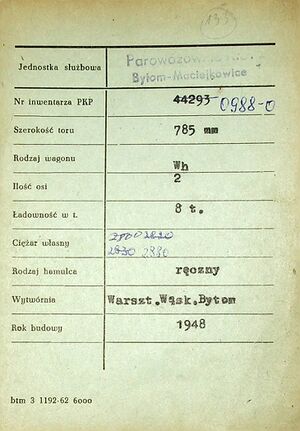 133
Jednostka służbowa
Parowozownia
Bytom-Maciejkowice
Nr inwentarza PKP 44293 0988-0
Szerokość toru 785 mm
Rodzaj wagonu Wh
Ilość osi 2
Ładowność w t. 8 t.
Ciężar własny 2820
2830 2880
Rodzaj hamulca ręczny
Wytwórnia Warszt.Wąsk.Bytom
Rok budowy 1948
btm 3 1192-62 6000